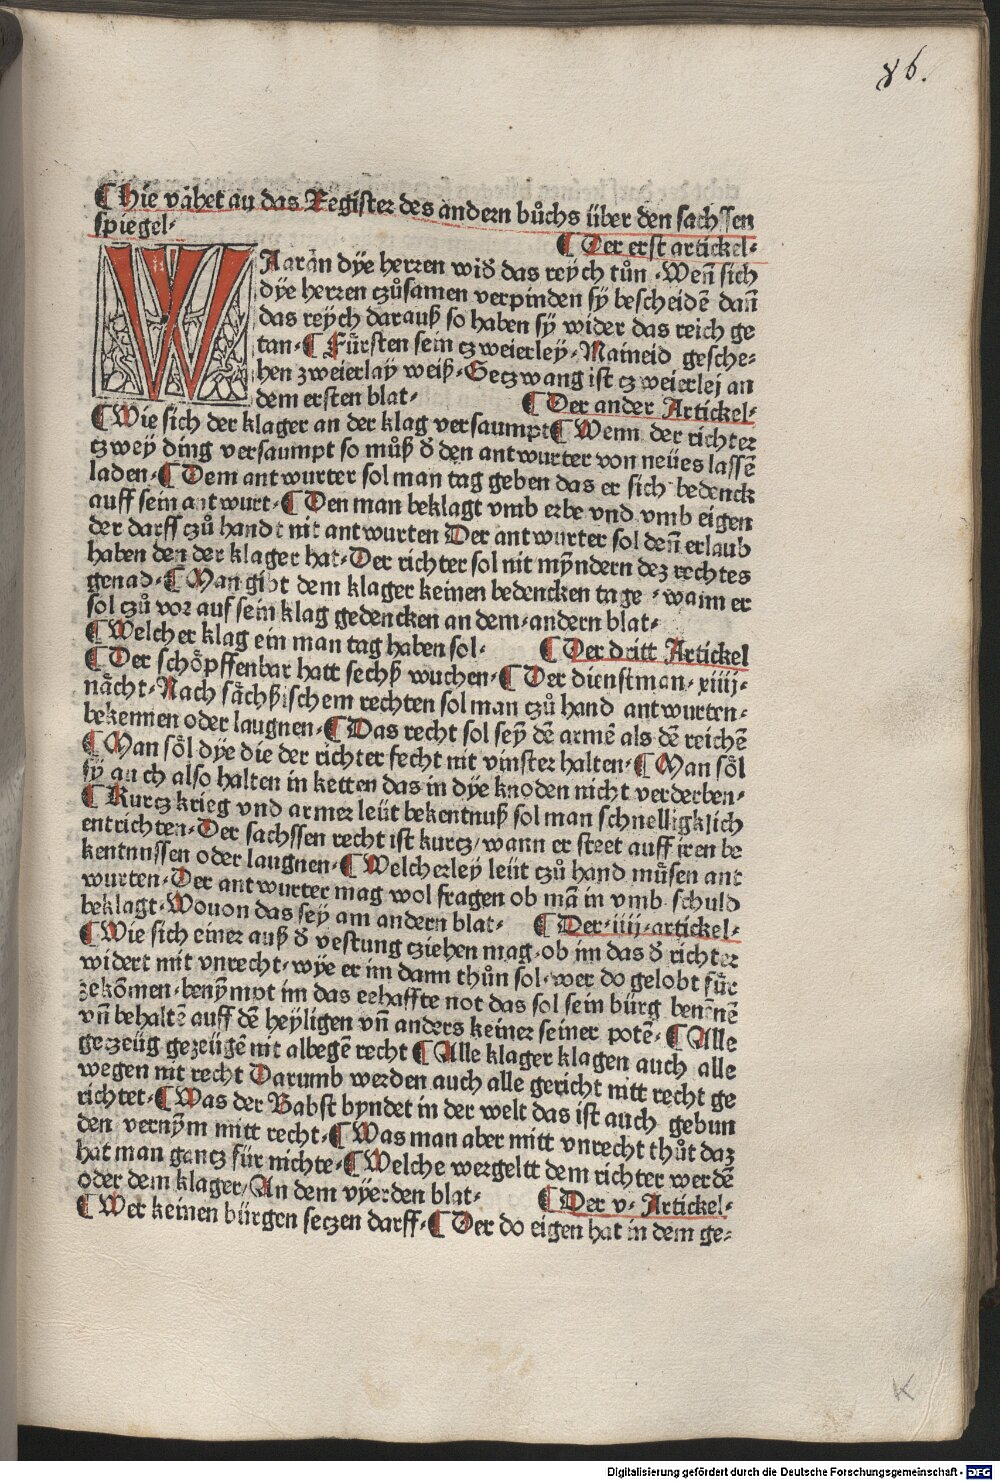 86.
¶ Hie vahet an das Register des andern bůchs über den sachssen
spiegel·
¶ Der erst artickel·
WAaran dÿe herzen wid̄ das reÿch tůn · Wen̄ sich
dÿe herzen czůsamen verpinden sÿ bescheidē dan̄
das reÿch darauß so haben sÿ wider das reich ge
tan·¶ Fürsten sein czweierley·Maineid gesche⸗
hen zweierlay weiß·Geczwang ist czweierlej an
dem ersten blat·
¶ Der ander Artickel·
¶ Wie sich der klager an der klag versaumpt¶ Wenn der richter
czweÿ ding versaumpt so můß d̄ den antwurter von neües lassē
laden·¶ Dem antwurter sol man tag geben das er sich bedenck
auff sein antwurt·¶ Den man beklagt vmb erbe vnd vmb eigen
der darff czů handt nit antwurten Der antwurter sol den̄ erlaub
haben den der klager hat·Der richter sol nit mÿndern dez rechtes
genad·¶ Man gibt dem klager keinen bedencken tage · wann er
sol czů vor auf sein klag gedencken an dem andern blat·
¶ Welcher klag ein man tag haben sol·
¶ Der dritt Artickel
¶ Der schöpffenbar hatt sechß wuchen·¶ Der dienstman·xiiij·
nächt·Nach sächßischem rechten sol man czů hand antwurten·
bekennen oder laugnen·¶ Das recht sol seÿ dē armē als dē reichē
¶ Man söl dÿe die der richter fecht nit vinster halten·¶ Man söl
sÿ auch also halten in ketten das in dÿe knoden nicht verderben·
¶ Kurcz krieg vnd armer leüt bekentnuß sol man schnelligklich
entrichten·Der sachssen recht ist kurcz/wann er steet auff iren be
kentnussen oder laugnen·¶ Welcherley leüt czů hand müsen ant
wurten·Der antwurter mag wol fragen ob mā in vmb schuld
beklagt·Wouon das sey am andern blat·
¶ Der·iiij·artickel·
¶ Wie sich einer auß d̄ vestung cziehen mag·ob im das d̄ richter
widert mit vnrecht·wÿe er im dann thůn sol·wer do gelobt für
zekōmen·benÿmpt im das eehaffte not das sol sein bürg benēnē
vn̄ behaltē auff dē heÿligen vn̄ anders keiner seiner potē·¶ Alle
geczeüg gezeügē nit albegē recht ¶ Alle klager klagen auch alle
wegen nit recht Darumb werden auch alle gericht nitt recht ge
richtet·¶ Was der Babst byndet in der welt das ist auch gebun
den vernÿm mitt recht·¶ Was man aber mitt vnrecht thůt daz
hat man gancz für nichte·¶ Welche wergeltt dem richter werdē
oder dem klager/An dem vÿerden blat·
¶ Der v· Artickel·
¶ Wer keinen bürgen seczen darff·¶ Der do eigen hat in dem ge⸗
K
Digitalisierung gefördert durch die Deutsche Forschungsgemeinschaft - DFG